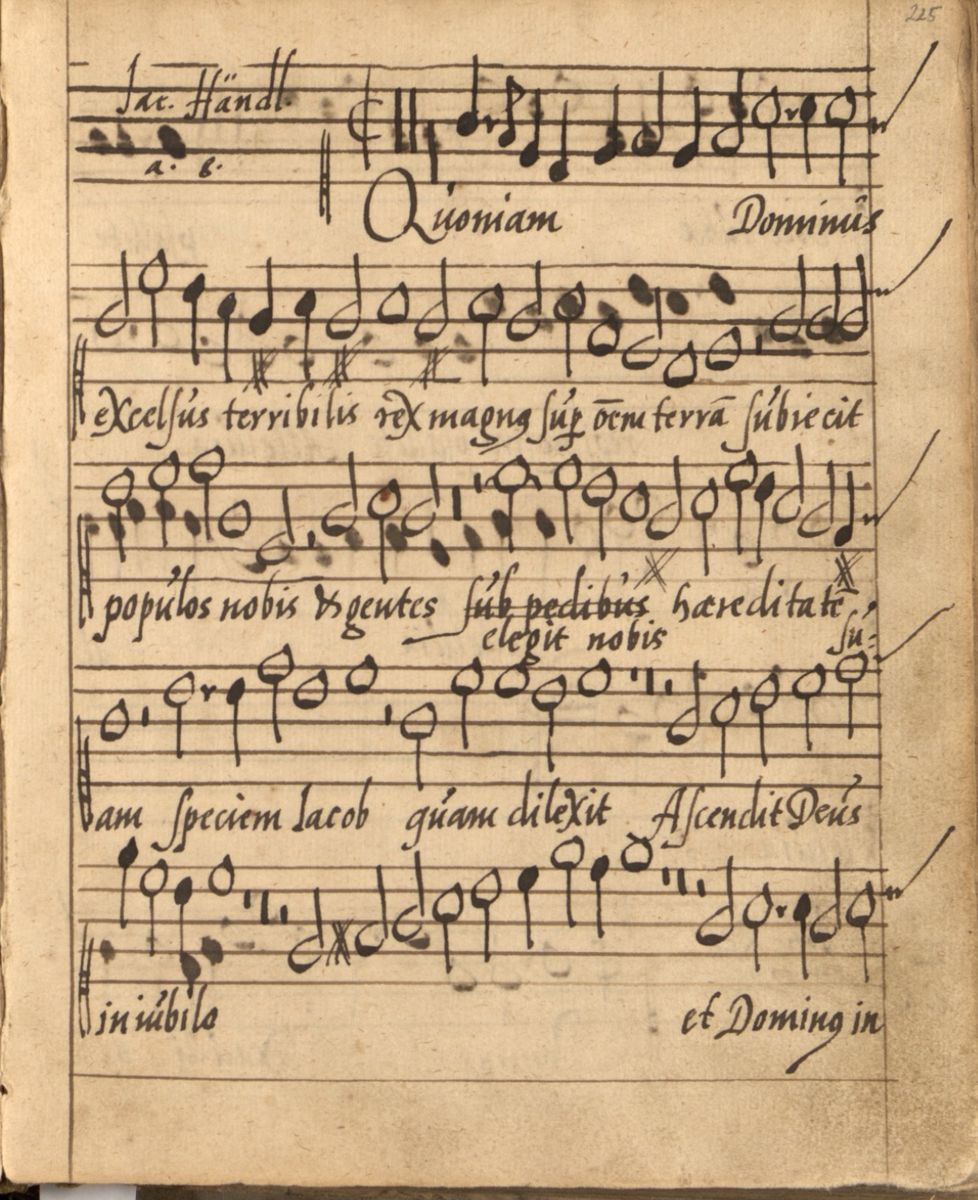 225
Jac. Händl.
a. 8.
Quoniam Dominus
excelsus terribilis rex magnꝰ suꝑ oēm terrā subiecit
populos nobis & gentes sub pedibus hæreditatē
elegit nobis su:
am speciem Iacob quam dilexit Ascendit Deus
in iubilo et Dominꝰ in